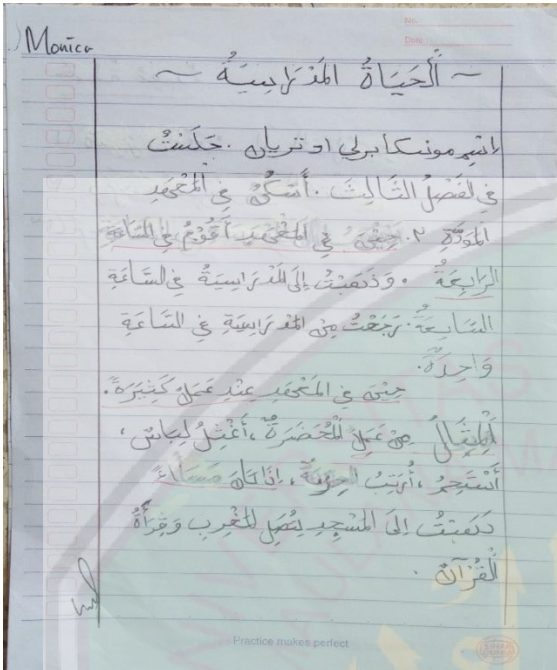 Monica
No.
Date
~ أَلْحَيَاةُ المَدْرَاسِيَةُ ~
اِسْمِ مونيكا برلي اوتريان. جَلَسْتُ
فِي لفَصْلُ الثَّالِثَ. أَسْكُنُ فِي المَعْهَدِ
المَوَدَّةِ ٢. حِيْنَ فِي المَعْهَدِ أَقُوْمُ فِي السَّاعَةِ
الرَابِعَةُ. وَذَهَبْتُ إِلىَ المَدْرَاسِيَةُ فِي السَّاعَةِ
السَابِعَةُ. رَجَعْتُ مِنْ المَدْرَاسِيَةِ فِي السَّاعَةِ
وَاحِدَةٌ.
حِيْنَ فِي المَعْهَدِ عِنْدِ عَمَلٌ كَثِيْرَةٌ.
مِنْ عَمَلِ ،أَغْسِلُ لِبَاسْ،
أَسْتَحِمُ ،أُرَتِبُ ، إِذَا مَسَاءً
ذَهَبْتُ إِلىَ المَسْجِدِ المَغْرِبِ وَقِرَأَةُ
القُرْآنْ.
Practice makes perfect